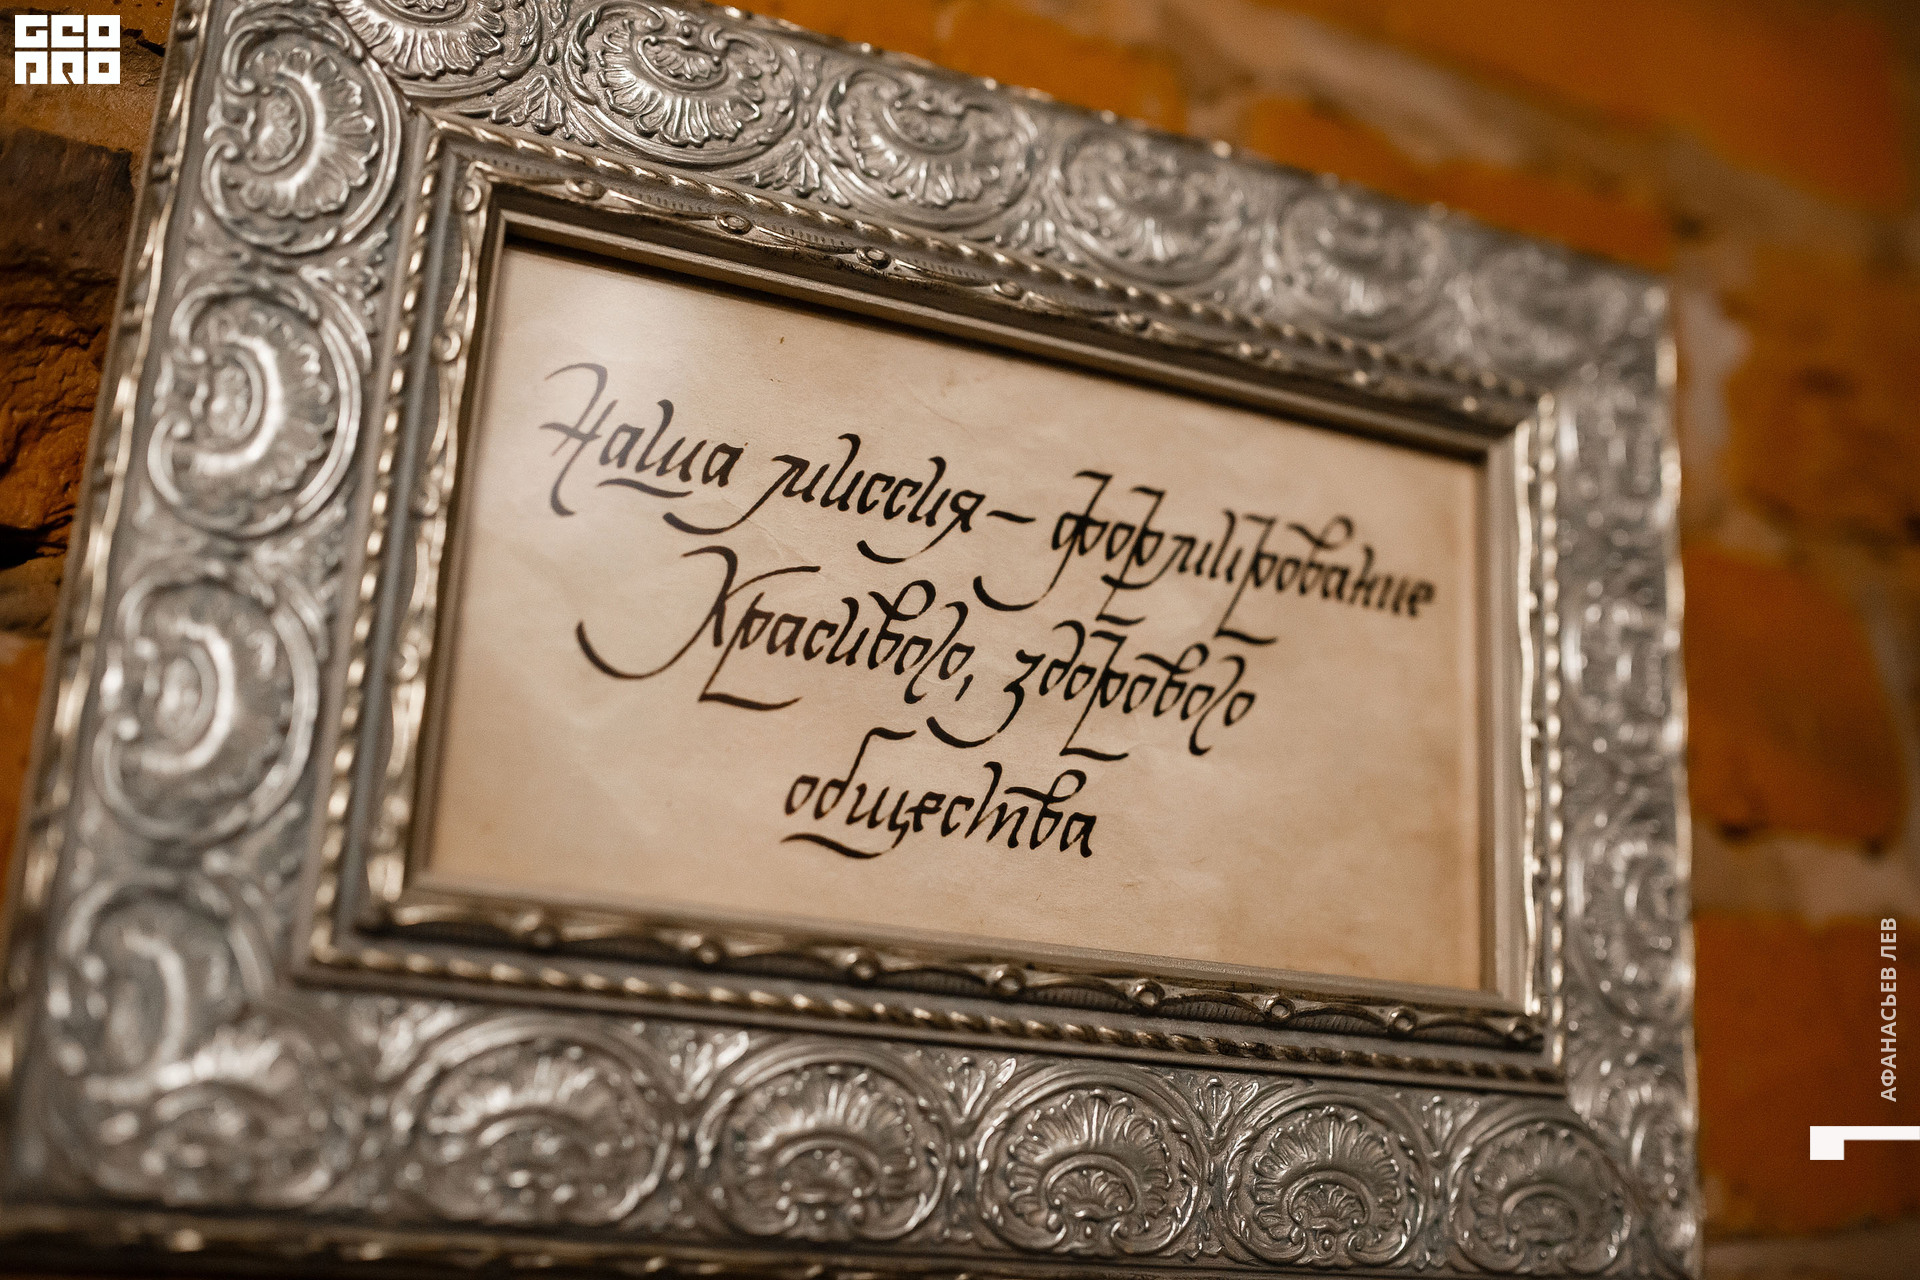 GEO
PRO
Наша миссия — формирование
Красивого, здорового
общества
АФАНАСЬЕВ ЛЕВ